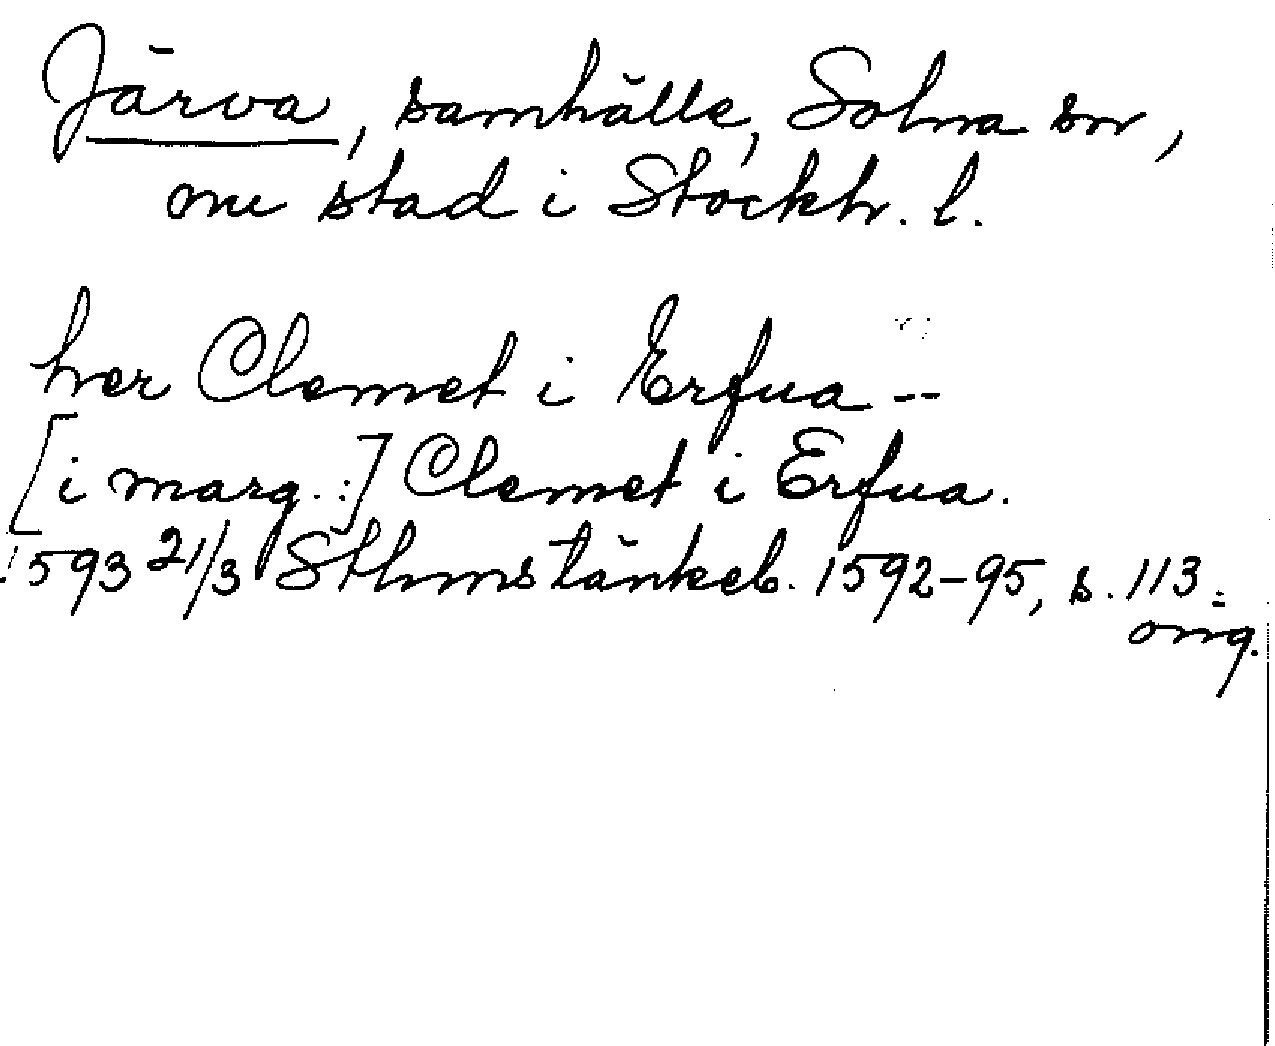 Järva, samhälle, Solna sn,
nu stad i Stockh. l.
her Clemet i Erfua --
[i marg.:] Clemet i Erfua.
1593 21/3 Sthms tänkeb. 1592-95, s. 113.
orig.